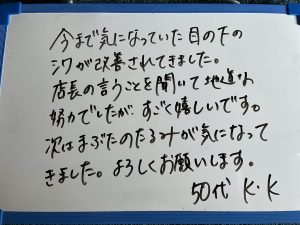 今まで気になっていた目の下の
シワが改善されてきました。
店長の言うことを聞いて地道な
努力でしたが、すごく嬉しいです。
次はまぶたのたるみが気になって
きました。よろしくお願いします。
50代 K・K